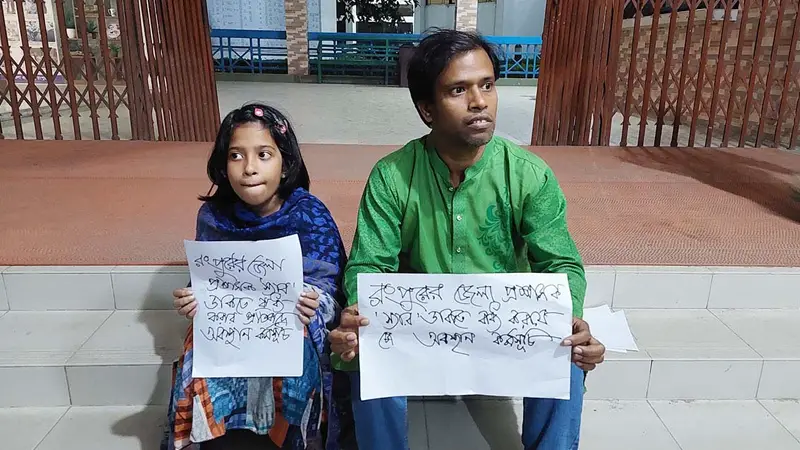 রংপুরের জেলা
প্রশাসক স্যার
ডাকতে বাধ্য
করার প্রতিবাদে
অবস্থান কর্মসূচি
রংপুরের জেলা প্রশাসক
স্যার ডাকতে বাধ্য করায়
অবস্থান কর্মসূচি